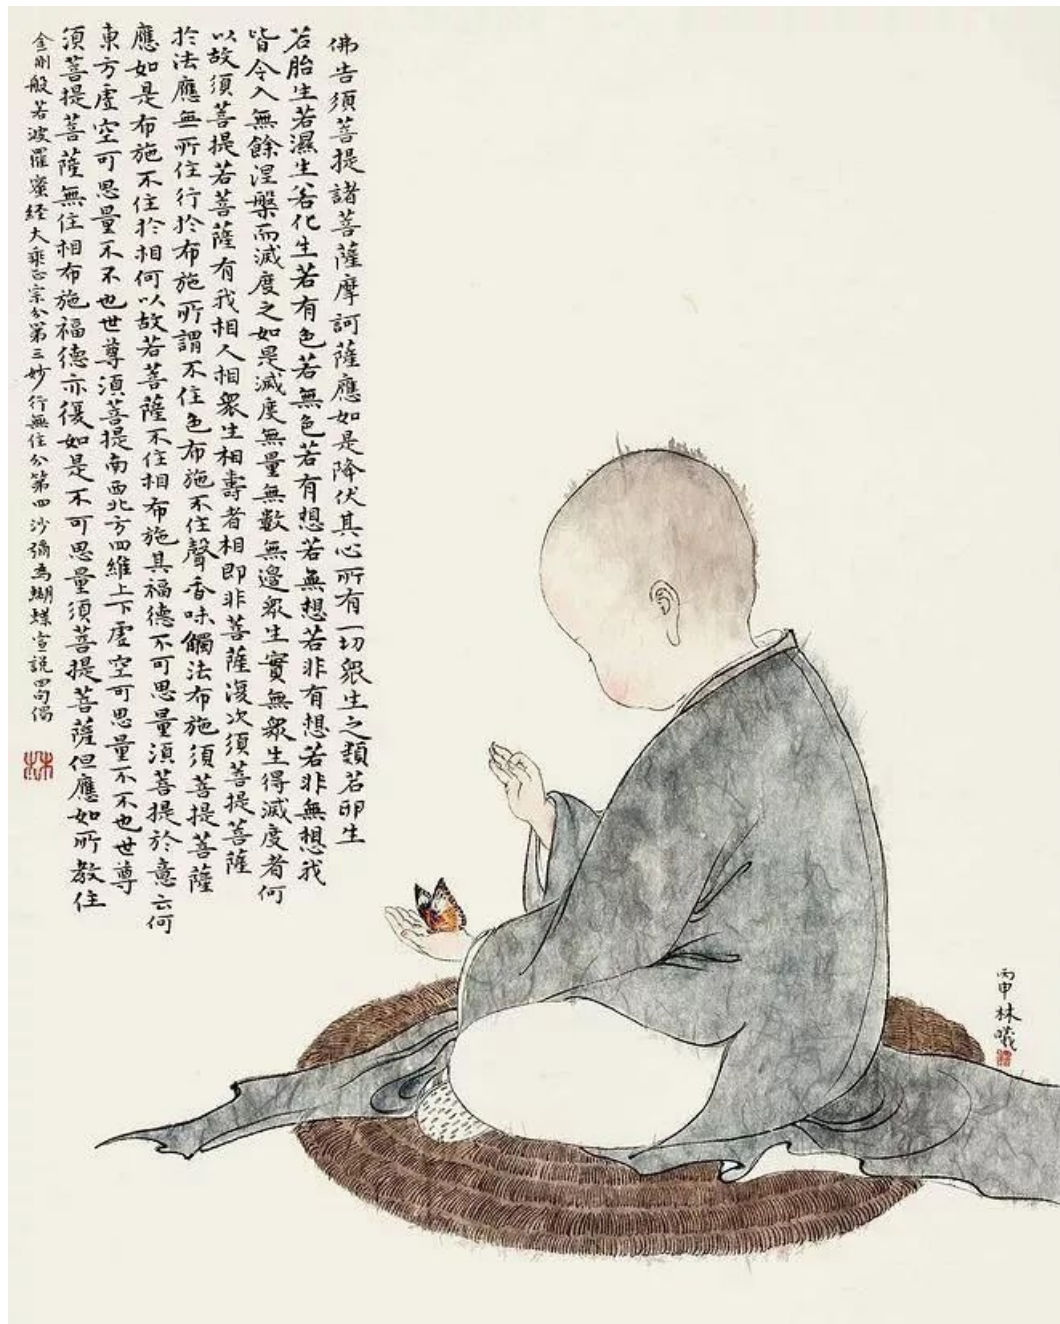 佛告須菩提諸菩薩摩訶薩應如是降伏其心所有一切眾生之類若卵生
若胎生若濕生若化生若有色若無色若有想若無想若非有想若非無想我
皆令入無餘涅槃而滅度之如是滅度無量無數無邊眾生實無眾生得滅度者何
以故須菩提若菩薩有我相人相眾生相壽者相即非菩薩復次須菩提菩薩
於法應無所住行於布施所謂不住色布施不住聲香味觸法布施須菩提菩薩
應如是布施不住於相何以故若菩薩不住相布施其福德不可思量須菩提於意云何
東方虛空可思量不不也世尊須菩提南西北方四維上下虛空可思量不不也世尊
須菩提菩薩無住相布施福德亦復如是不可思量須菩提菩薩但應如所教住
金剛般若波羅蜜经大乘正宗分第三妙行無住分第四沙彌為蝴蝶宣說四句偈
丙申林曦